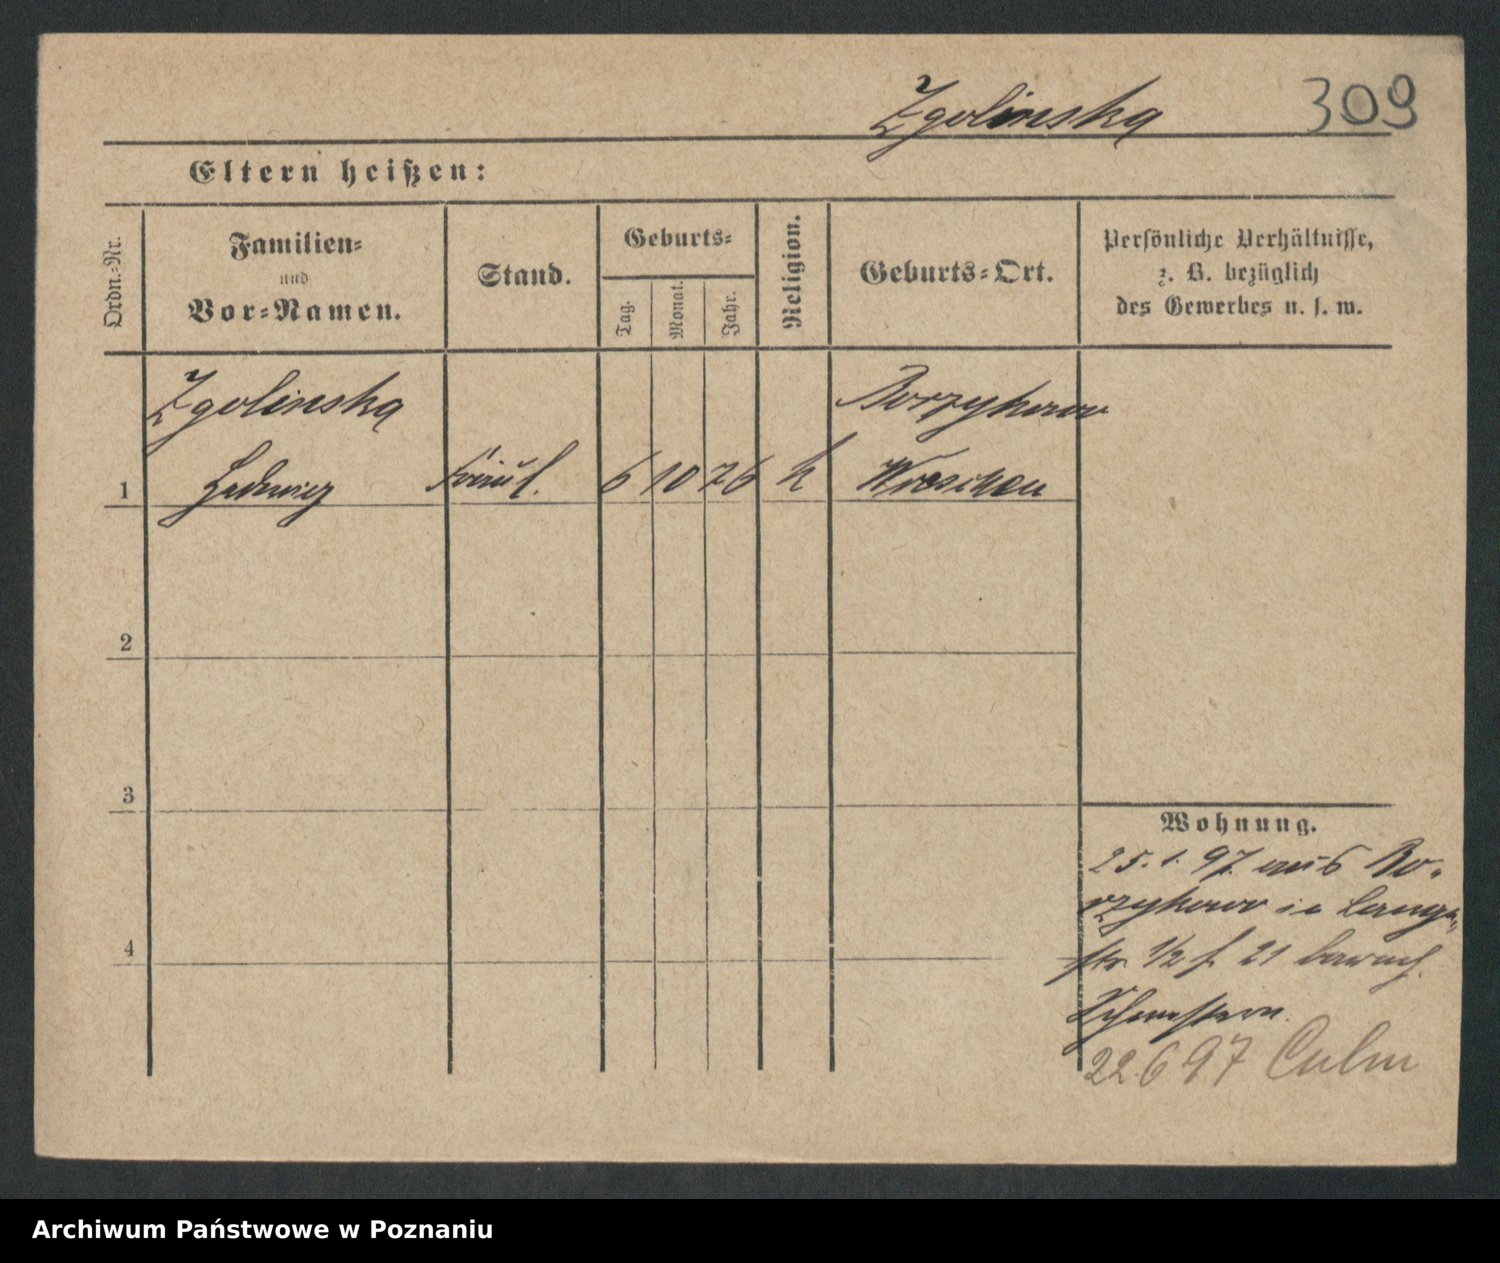 Zgolinska 309
Eltern heißen:
Ordn.-Nr.
Familien-
und
Vor-Namen.
Stand.
Geburts-
Tag.
Monat.
Jahr.
Religion.
Geburts-Ort.
Persönliche Verhältnisse,
z. B. bezüglich
des Gewerbes u. s. w.
Zgolinska Borzykowo
1 Hedwig Fräul. 6 10 76 k Wreschen
2
3
4
Wohnung.
25. 1. 97. aus Bo-
rzykowo Lange-
str. 1/2 21
22.6 97 Culm
Archiwum Państwowe w Poznaniu